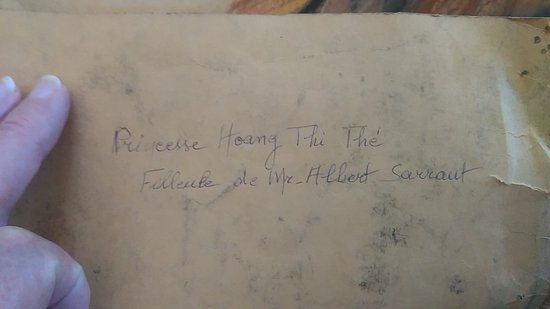 Princesse Hoang Thi Thé
Filleule de Mr. Albert Sarraut